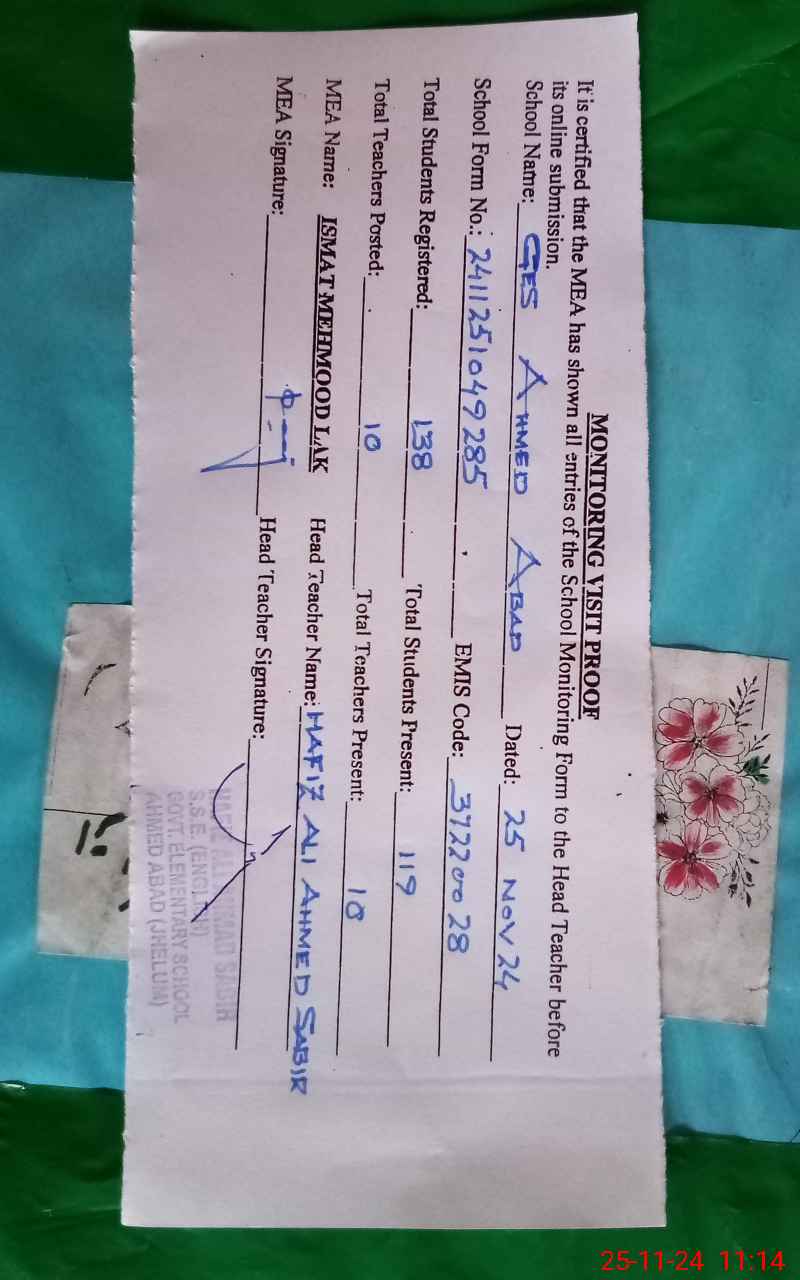 MONITORING VISIT PROOF
It is certified that the MEA has shown all entries of the School Monitoring Form to the Head Teacher before
its online submission.
School Name: GES AHMED ABAD Dated: 25 NOV 24
School Form No.: 2411251049285 EMIS Code: 37220028
Total Students Registered: 138 Total Students Present: 119
Total Teachers Posted: 10 Total Teachers Present: 10
MEA Name: ISMAT MEHMOOD LAK Head Teacher Name: HAFIZ ALI AHMED SABIR
MEA Signature: Head Teacher Signature:
HAFIZ ALI AHMAD SABIR
S.S.E. (ENGLISH)
GOVT. ELEMENTARY SCHOOL
AHMED ABAD (JHELUM)
25-11-24 11:14